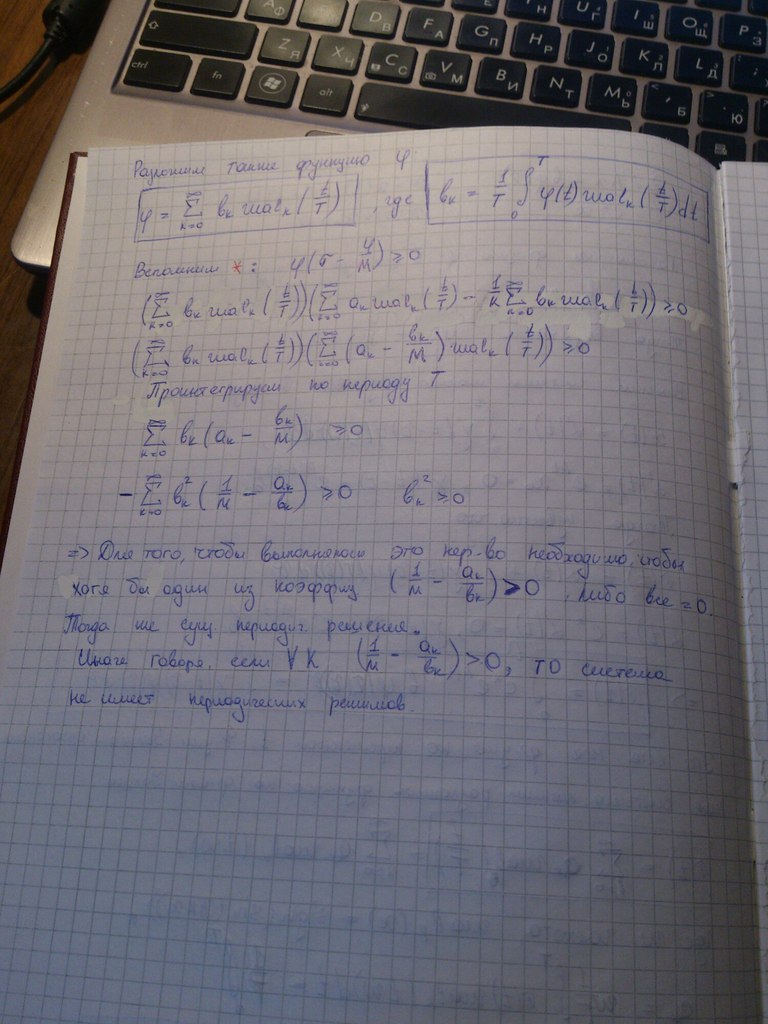 Разложим также функцию φ
φ = Σ_{k=0}^{∞} b_k wal_k (t/T) , где b_k = 1/T ∫_0^T φ(t) wal_k (t/T) dt
Вспомним *: φ(σ - φ/M) ≥ 0
(Σ_{k=0}^{∞} b_k wal_k (t/T)) (Σ_{k=0}^{∞} a_k wal_k (t/T) - 1/k Σ_{k=0}^{∞} b_k wal_k (t/T)) ≥ 0
(Σ_{k=0}^{∞} b_k wal_k (t/T)) (Σ_{k=0}^{∞} (a_k - b_k/M) wal_k (t/T)) ≥ 0
Проинтегрируем по периоду T
Σ_{k=0}^{∞} b_k (a_k - b_k/M) ≥ 0
- Σ_{k=0}^{∞} b_k^2 (1/M - a_k/b_k) ≥ 0 b_k^2 ≥ 0
=> Для того, чтобы выполнялось это нер-во необходимо, чтобы
хотя бы один из коэффиц (1/M - a_k/b_k) > 0 , либо все = 0.
Тогда же сущ. периодич решения.
Иначе говоря, если ∀ k (1/M - a_k/b_k) > 0, то система
не имеет периодических режимов.
ctrl
fn
alt
Z Я
X Ч
C С
V М
B И
N Т
M Ь
Б
Ю
D В
F А
G П
H Р
J О
K Л
L Д
U Г
I Ш
O Щ
P З